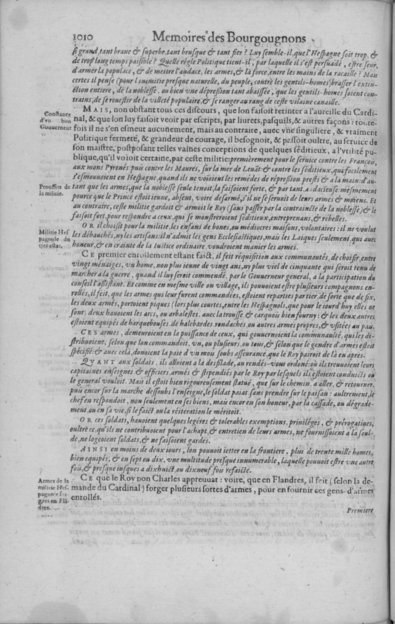 1010 Memoires des Bourgougnons
& grand, tant brave & superbe, tant brusque & tant fier? Luy semble-il, que l'Hespagne soit trop, &
de trop long temps paisible? Quelle régle Politique tient-il, par laquelle il s'est persuadé, estre seur,
d'armer la populace, & de mettre l'audace, les armes, & la force, entre les mains de la racaille? Mais
certes il pense
tion entiere, de la noblesse, au bien vne dépression tant abaissée, que les gentils-hommes soient con-
traints, de se reuestir de la vilité populaire, & se ranger au rang de ceste vilaine canaille.
MAIS, non obstant tous ces discours, que lon faisoit retinter à l'aureille du Cardi-
nal, & que lon luy faisoit veoir par escripts, par liurets, pasquils, & autres façons: toute-
fois il ne s'en esmeut aucunement, mais au contraire, auec vne singuliere, & vrayment
Politique fermeté, & grandeur de courage, il besognoit, & pessoit oultre, au seruice de
son maistre, postposant telles vaines conceptions de quelques séditieux, à l'vtilité pu-
blique, qu'il voioit certaine, par ceste militie: premièrement pour le seruice contre les Français,
aux monts Pyrenés puis contre les Maures, sur la mer de Leuāt & contre les séditieux, qui facilement
s'esmouuoient en Hespagne, quand ils ne voioient les remédes de dépression prests & à la main d'au-
tant que les armes, que la noblesse seule tenoit, la faisoient forte, & par tant
pource que le Prince estoit ieune, absent, voire desarmé, s'il ne se seruoit de leurs armes & moiens. Et
au contraire, ceste militie gardoit & armoit le Roy (sans passer par la contraincte de la noblesse) & le
faisoit fort, pour respondre à ceux, qui se monstreroient séditieux, entreprenans, & rebelles.
OR il choisit pour la militie, les enfans de bonnes, ou médiocres maisons, volontaires: il ne vouloit
les débauchés, ny les artisans: il n'admit les gens Ecclesiastiques, mais les Laiques seulement, qui auec
honneur, & en crainte de la iustice ordinaire, voudroient manier les armes.
CE premier enroillement estant faict, il feit réquisition aux communautés, de choisir, entre
vingt ménaiges, vn homme, non plus ieune de vingt ans, ny plus vieil de cinquante qui seroit tenu de
marcher à la guerre, quand il luy seroit commandé, par le Gouuerneur general, à la participation du
conseil l'assistant. Et comme en mesme ville ou village, ils pouuoient estre plusieurs compagnies en-
rolées, il feit, que les armes qui leur furent commandées, estoient repaties par tier, de sorte que de six,
les deux armes, portoient picques (lors plus courtes, entre les Hespagnols, que pour le iourd'huy elles ne
sont) deux hauoient les arcs, ou arbalestes, auec la trousse & carquois bien fourny: & les deux autres
estoient equipés de harquebouses de halebardes rondaches ou autres armes propres, & vsitées au païs.
CES armes, demeuroient en la puissance de ceux, qui gouuernoient la communauté, qui les di-
stribuoient, selon que lon commandoit, vn, ou plusieurs, ou tous, & selon que le gendre d'armes estoit
spécifié & auec cela, donoient la paie d'vn mou soubs asseurance, que le Roy païroit de là en aprés.
QVANT aux soldats, ils alloient à la desfilade, au rendés-vous ordonné où ils trouuoient leurs
capitaines enseignes & officiers armés & stipendiés par le Roy par lesquels ils estoient conduicts où
le general vouloit. Mais il estoit bien rigoureusement statué, que sur le chemin, à aller, & retourner,
puis encor sur la marche dessoubs l'enseigne, le soldat païat sans prendre sur le païsan: aultrement, le
chef en respondoit, non seulement en ses biens, mais encor en son honneur, par la cassade, ou dégrade-
ment ou en sa vie, si le faict ou la réiteration le méritoit.
OR ces soldats, hauoient quelques legiéres & tolerables exemptions, priuiléges, & prérogatiues,
oultre ce, qu'ils ne contribuoient pour l'achapt, & entretien de leurs armes, ne fournissoient à la soul-
de, ne logeoient soldats, & ne faisoient gardes.
AINSI en moins de deux iours, lon pouuoit ietter en la frontiere, plus de trente mille hommes,
bien equippés, & en sept ou dix, vne multitude presque innumerable, laquelle pouuoit estre vne autre
fois, & presque iusques à dixhuict, ou dixneuf fois refaicte.
CE que le Roy don Charles appreuuat: voire, que en Flandres, il feit (selon la de-
mande du Cardinal) forger plusieurs sortes d'armes, pour en fournir ces gens-d'armes
enrollés.
Premiere
Constance
d'vn bon
Gouuerneur
Proussits de
la milice.
Militie Hes-
pagnole du
vieillart.
Armes de la
militie Hes-
pagnole for-
gées en Flā-
dres.